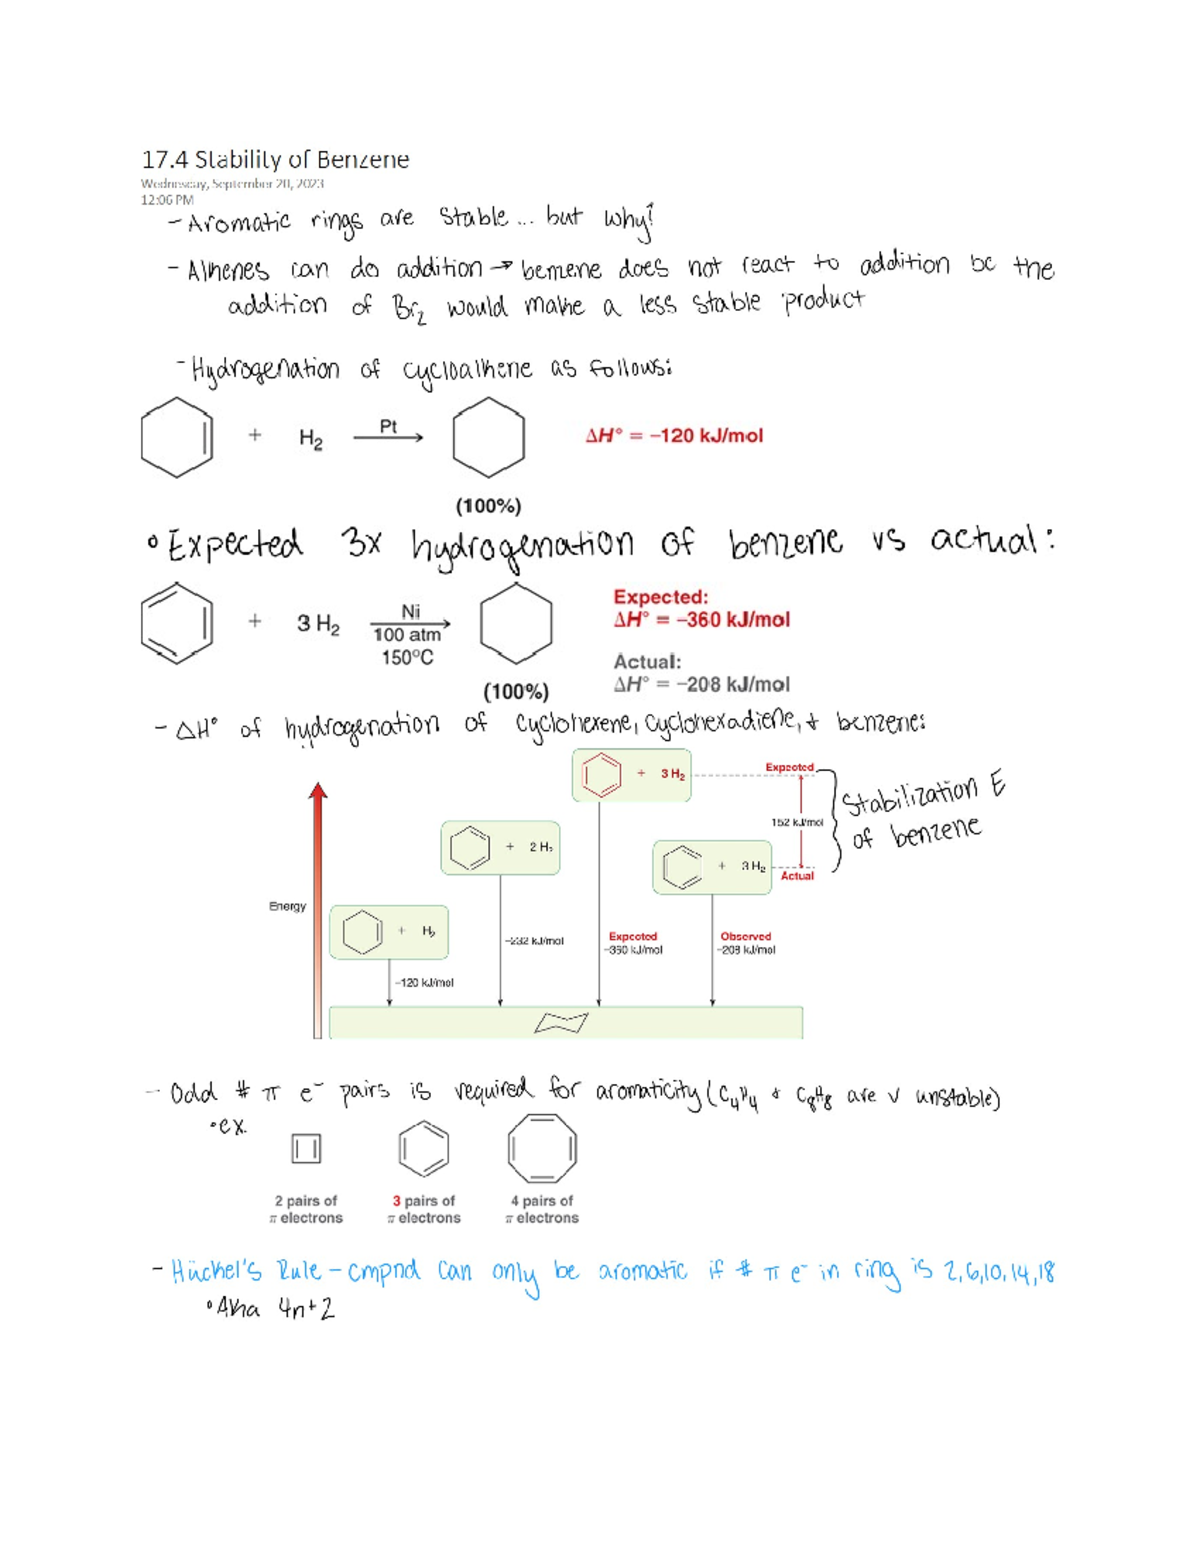 17.4 Stability of Benzene
Wednesday, September 20, 2023
12:06 PM
- Aromatic rings are stable... but why?
- Alkenes can do addition → benzene does not react to addition bc the
addition of Br2 would make a less stable product
- Hydrogenation of cycloalkene as follows:
+ H2 Pt ΔH° = −120 kJ/mol
(100%)
• Expected 3x hydrogenation of benzene vs actual:
+ 3 H2 Ni
100 atm
150°C
(100%)
Expected:
ΔH° = −360 kJ/mol
Actual:
ΔH° = −208 kJ/mol
- ΔH° of hydrogenation of cyclohexene, cyclohexadiene, + benzene:
+ 3 H2 Expected
152 kJ/mol
Stabilization E
of benzene
+ 2 H2
+ 3 H2
Actual
Energy
+ H2
−232 kJ/mol
Expected
−360 kJ/mol
Observed
−208 kJ/mol
−120 kJ/mol
- Odd # π e⁻ pairs is required for aromaticity (C4H4 & C8H8 are v unstable)
• ex.
2 pairs of
π electrons
3 pairs of
π electrons
4 pairs of
π electrons
- Hückel's Rule - cmpnd can only be aromatic if # π e⁻ in ring is 2,6,10,14,18
• Aka 4n+2